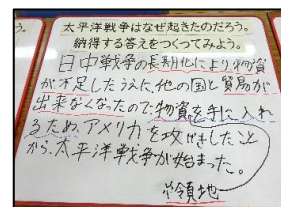 太平洋戦争はなぜ起きたのだろう。
納得する答えをつくってみよう。
日中戦争の長期化により、物資
が不足したうえに、他の国と貿易が
出来なくなったので、物資を手に入れ
るため、アメリカを攻げきしたこと
から、太平洋戦争が始まった。
領地
う。